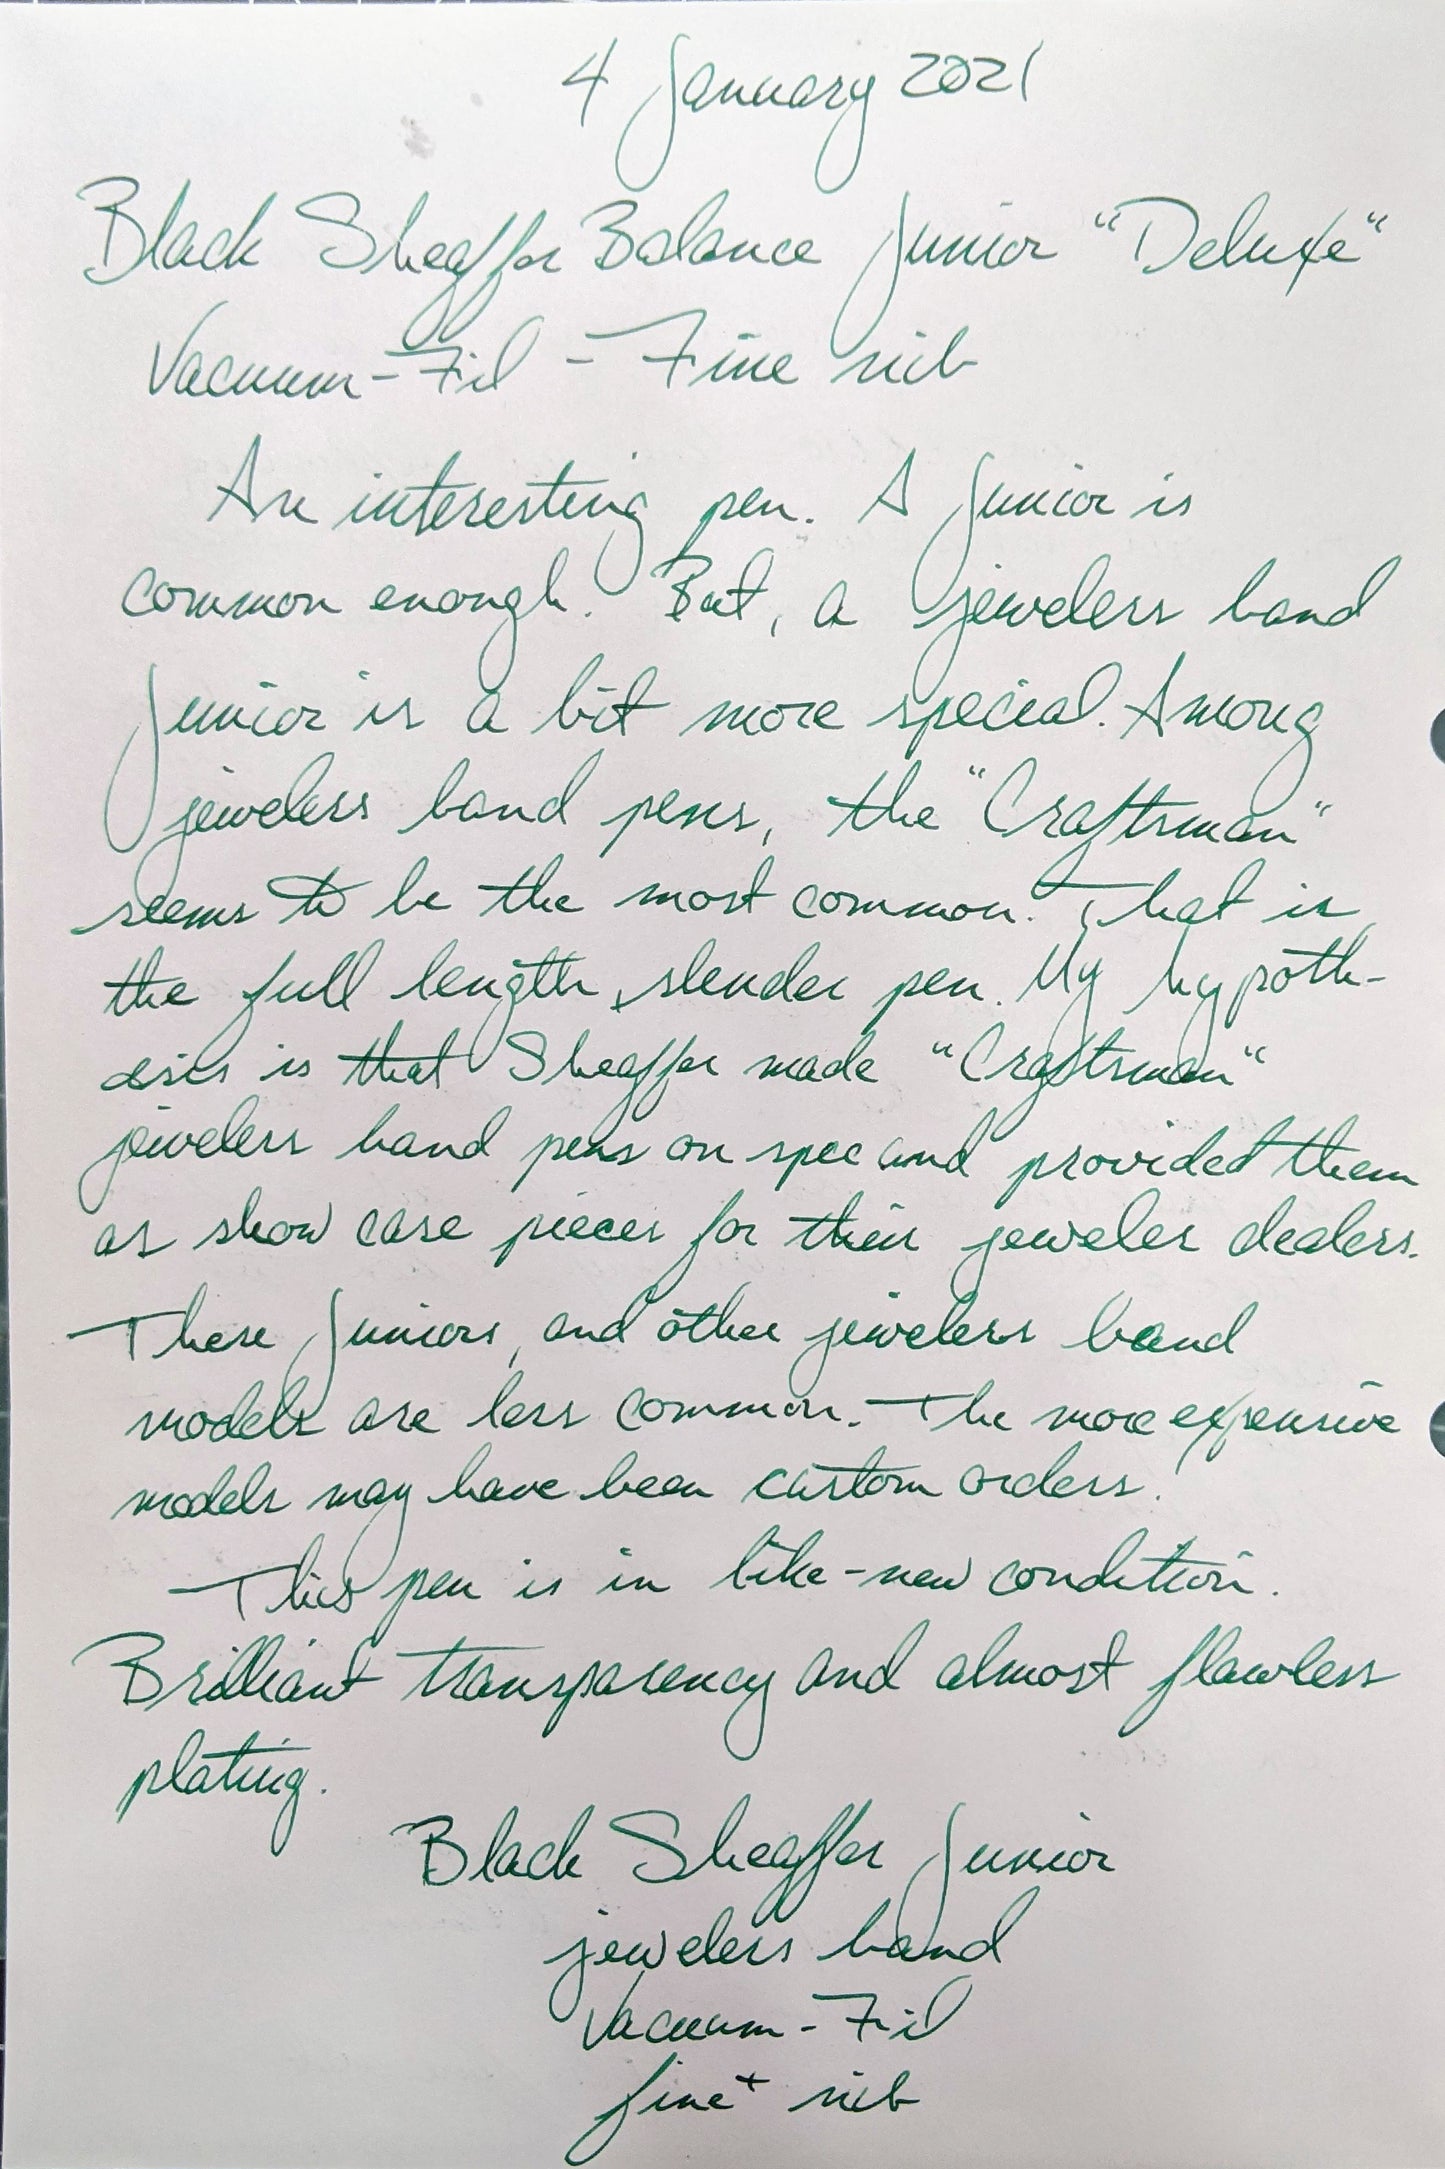 4 January 2021
Black Sheaffer Balance Junior "Deluxe"
Vacuum-Fil - Fine nib
An interesting pen. A Junior is
common enough. But, a jewelers band
Junior is a bit more special. Among
jewelers band pens, the "Craftsman"
seems to be the most common. That is
the full length, slender pen. My hypoth-
esis is that Sheaffer made "Craftsman"
jewelers band pens on spec and provided them
as show case pieces for their jeweler dealers.
These Juniors, and other jewelers band
models are less common. The more expensive
models may have been custom orders.
This pen is in like-new condition.
Brilliant transparency and almost flawless
plating.
Black Sheaffer Junior
jewelers band
Vacuum-Fil
fine+ nib